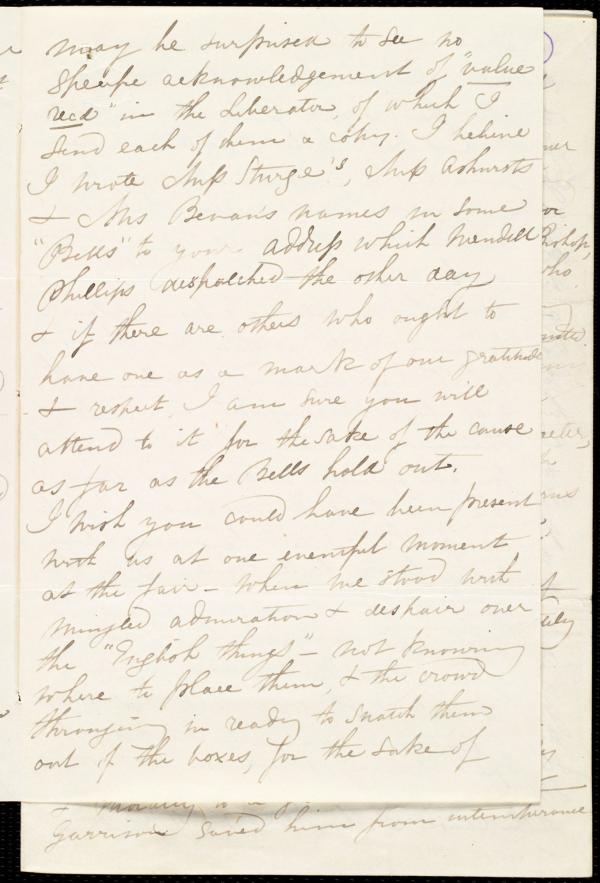 may be surprised to see no
specific acknowledgement of "value
recd" in the Liberator, of which I
send each of them a copy. I believe
I wrote Miss Sturge's, Miss Ashursts
& Mrs Bevan's names in some
"Bells" to your address which Wendell
Phillips despatched the other day
& if there are others who ought to
have one as a mark of our gratitude
& respect, I am sure you will
attend to it for the sake of the cause
as far as the Bells hold out.
I wish you could have been present
with us at one eventful moment
at the fair - when we stood with
mingled admiration & despair over
the "English things" - not knowing
where to place them, & the crowd
thronging in ready to snatch them
out of the boxes, for the sake of
Garrison saved him from intemperance